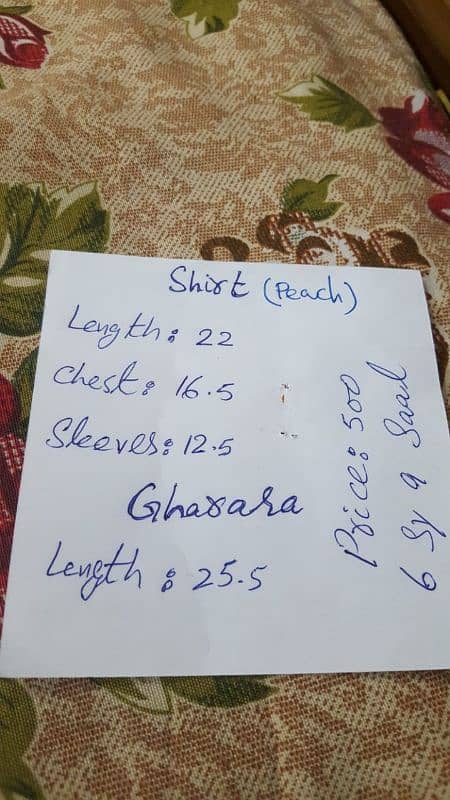 Shirt (Peach)
Length: 22
Chest: 16.5
Sleeves: 12.5
Gharara
Length: 25.5
Price: 500
6 Sy 9 Saal